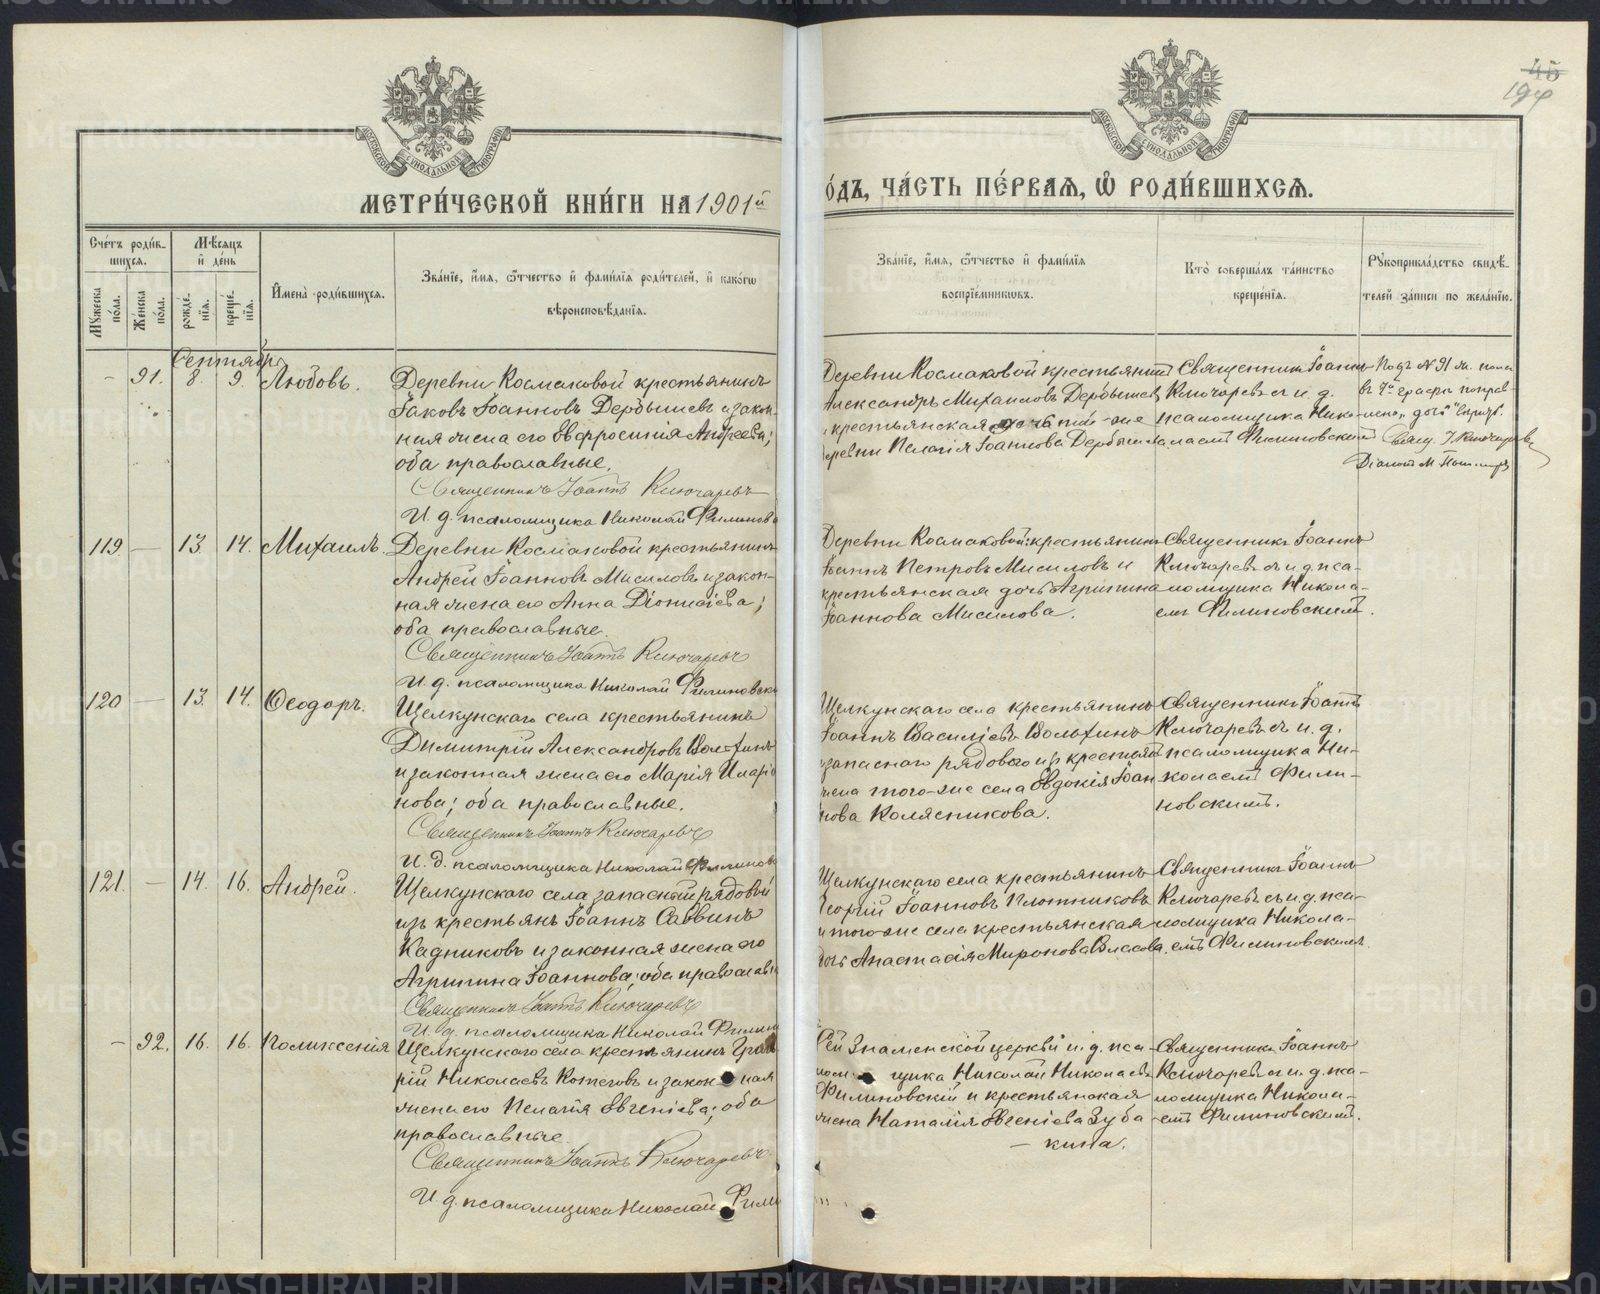 45
194
МОСКОВСКОЙ СѴНОДАЛЬНОЙ ТИПОГРАФІИ
МОСКОВСКОЙ СѴНОДАЛЬНОЙ ТИПОГРАФІИ
МЕТРИ́ЧЕСКОЙ КНИ́ГИ НА 1901й
О́ДЪ, ЧА́СТЬ ПЕ́РВАѦ, Ѿ РОДИ́ВШИХСѦ.
Сче́тъ роди́в-
шихсѧ.
Мꙋжеска по́ла.
Же́нска по́ла.
Мѣ́сѧцъ
и҆ де́нь
рожде́нїѧ.
креще́нїѧ.
И҆мена̀ роди́вшихсѧ.
Зва́нїе, и҆́мѧ, ѻ҆́тчество и҆ фами́лїѧ роди́телей, и҆ како́гѡ
вѣроисповѣ́данїѧ.
Зва́нїе, и҆́мѧ, ѻ҆́тчество и҆ фами́лїѧ
воспрїе́мникѡвъ.
Кто̀ соверша́лъ та́инство
креще́нїѧ.
Рꙋкоприкла́дство свидѣ́-
телей за́писи по жела́нїю.
Сентябрь
— 91. 8. 9. Любовь.
Деревни Космаковой крестьянинъ
Іаковъ Іоанновъ Дербышевъ и закон-
ная жена его Евфросинія Андреева;
оба православные.
Священникъ Іоаннъ Ключаревъ
И. д. псаломщика Николай Филинов
Деревни Космаковой крестьянинъ
Александръ Михаиловъ Дербышевъ
и крестьянская дочь той-же
деревни Пелагія Іоаннова Дербышева.
Священникъ Іоаннъ
Ключаревъ съ и. д.
псаломщика Нико-
лаемъ Филиновскимъ
Подъ № 91 на
въ 7й графѣ поправ-
лено „дочь“ вѣрно.
Свящ. І. Ключаревъ
Діаконъ М.
119. — 13. 14. Михаилъ.
Деревни Космаковой крестьянинъ
Андрей Іоанновъ Мисиловъ и закон-
ная жена его Анна Діонисіева;
оба православные.
Священникъ Іоаннъ Ключаревъ
И. д. псаломщика Николай Филиновски
Деревни Космаковой: крестьянинъ
Іоаннъ Петровъ Мисиловъ и
крестьянская дочь Агрипина
Іоаннова Мисилова.
Священникъ Іоаннъ
Ключаревъ съ и. д. пса-
ломщика Никола-
емъ Филиновскимъ.
120 — 13. 14. Ѳеодоръ.
Щелкунскаго села крестьянинъ
Димитрій Александровъ Вольхинъ
и законная жена его Марія Иларіо
нова; оба православные.
Священникъ Іоаннъ Ключаревъ
И. д. псаломщика Николай Филинов
Щелкунскаго села крестьянинъ
Іоаннъ Василіевъ Вольхинъ
запаснаго рядового изъ крестьянъ
жена того-же села Евдокія Іоан-
нова Колясникова.
Священникъ Іоаннъ
Ключаревъ съ и. д.
псаломщика Ни-
колаемъ Фили-
новскимъ.
121. — 14. 16. Андрей.
Щелкунскаго села запасный рядовой
изъ крестьянъ Іоаннъ Саввинъ
Кадниковъ и законная жена его
Агрипина Іоаннова; оба православн
Священникъ Іоаннъ Ключаревъ
И. д. псаломщика Николай Филин
Щелкунскаго села крестьянинъ
Георгій Іоанновъ Плотниковъ
и того-же села крестьянская
дочь Анастасія Миронова Власова.
Священникъ Іоаннъ
Ключаревъ съ и. д. пса-
ломщика Никола-
емъ Филиновскимъ.
— 92. 16. 16. Поликсенія
Щелкунскаго села крестьянинъ
рій Николаевъ Котеговъ и закон ная
жена его Пелагія Евгеніева; оба
православные.
Священникъ Іоаннъ Ключаревъ
И. д. псаломщика Николай Фили
Сей Знаменской церкви и. д. пса-
лом щика Николай Николаевъ
Филиновскій и крестьянская
жена Наталія Евгеніева Зуба
— кина.
Священникъ Іоаннъ
Ключаревъ съ и. д. пса-
ломщика Никола-
емъ Филиновскимъ.
METRIKI.GASO-URAL.RU